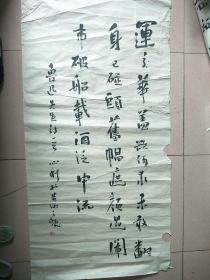 運交華蓋欲何求未敢翻
身已碰頭舊帽遮顏過鬧
市破船載酒泛中流
魯迅先生詩一首